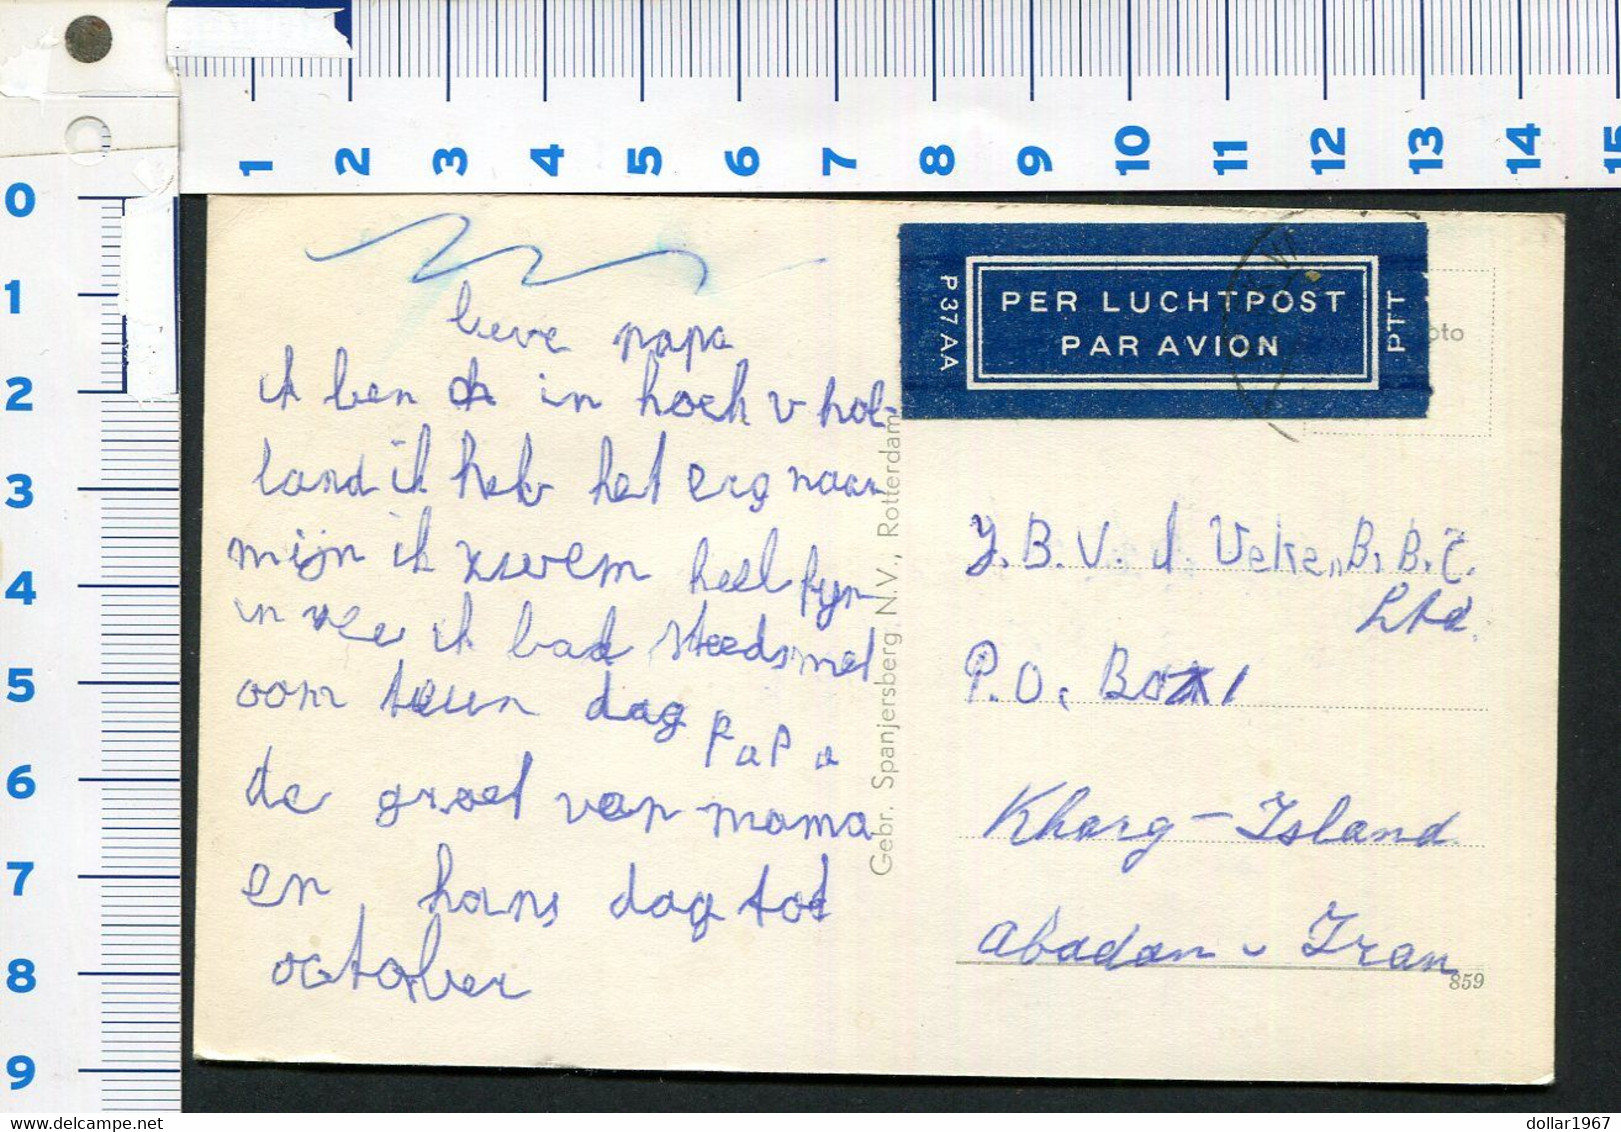 lieve papa
ik ben in hoek v hol-
land ik heb het erg naar
mijn ik zwem heel fijn
in zee ik bad steedsmet
oom teun dag papa
de groet van mama
en hans dag tot
october
Gebr. Spanjersberg N.V., Rotterdam
P 37 AA
PER LUCHTPOST
PAR AVION
PTT
oto
J. B. V. d. Veken, B. B. C.
Ltd.
P.O. Box 1
Kharg-Island
abadan - Iran
859
1 2 3 4 5 6 7 8 9 10 11 12 13 14 15
0
1
2
3
4
5
6
7
8
9
dollar1967